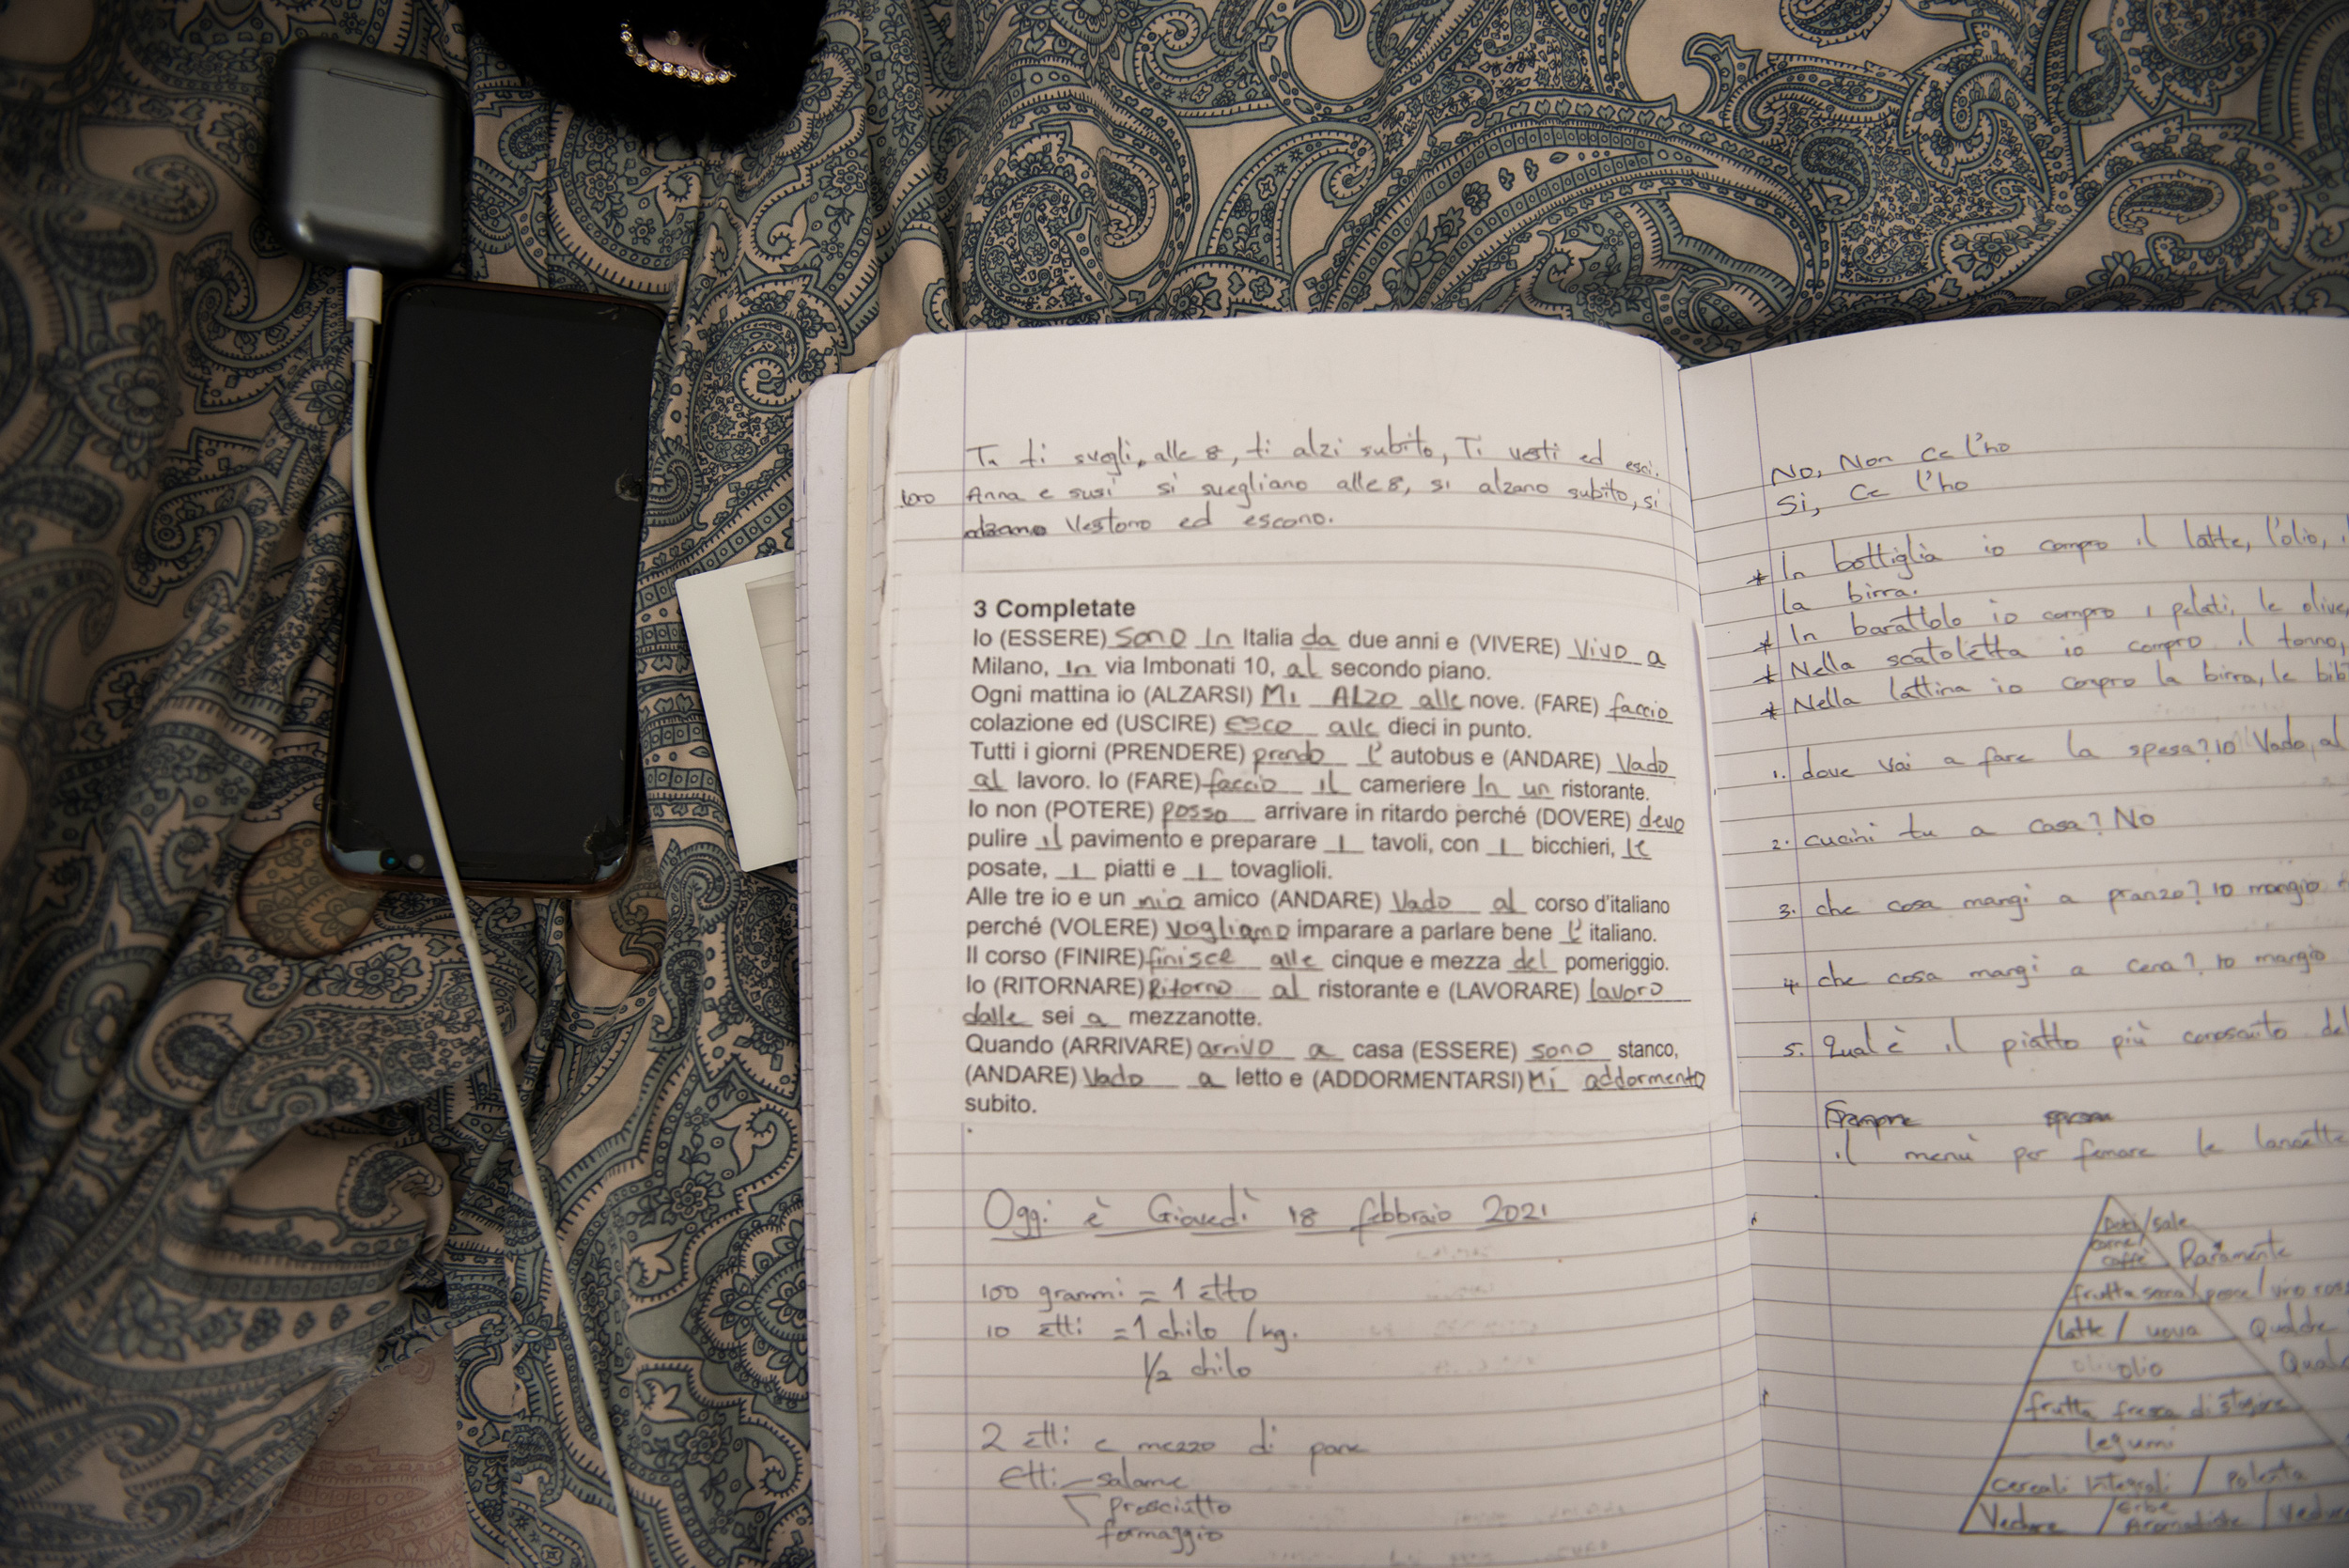 Tu ti svegli, alle 8, ti alzi subito, Ti vesti ed esci.
loro Anna e susi si svegliano alle 8, si alzano subito, si
alzano Vestono ed escono.
3 Completate
Io (ESSERE) sono In Italia da due anni e (VIVERE) Vivo a
Milano, In via Imbonati 10, al secondo piano.
Ogni mattina io (ALZARSI) Mi ALZO alle nove. (FARE) faccio
colazione ed (USCIRE) esco alle dieci in punto.
Tutti i giorni (PRENDERE) prendo l' autobus e (ANDARE) Vado
al lavoro. Io (FARE) faccio il cameriere In un ristorante.
Io non (POTERE) posso arrivare in ritardo perché (DOVERE) devo
pulire il pavimento e preparare I tavoli, con I bicchieri, le
posate, I piatti e I tovaglioli.
Alle tre io e un mio amico (ANDARE) Vado al corso d'italiano
perché (VOLERE) vogliamo imparare a parlare bene l' italiano.
Il corso (FINIRE) finisce alle cinque e mezza del pomeriggio.
Io (RITORNARE) Ritorno al ristorante e (LAVORARE) lavoro
dalle sei a mezzanotte.
Quando (ARRIVARE) arrivo a casa (ESSERE) sono stanco,
(ANDARE) Vado a letto e (ADDORMENTARSI) Mi addormento
subito.
Oggi è Giovedì 18 febbraio 2021
100 grammi = 1 etto
10 etti = 1 chilo / kg.
1/2 chilo
2 etti e mezzo di pane
Etti salame
prosciutto
formaggio
No, Non ce l'ho
Si, ce l'ho
* In bottiglia io compro il latte, l'olio,
la birra.
* In barattolo io compro i pelati, le olive,
* Nella scatoletta io compro il tonno,
* Nella lattina io compro la birra, le bib
1. dove vai a fare la spesa? Io Vado al
2. cucini tu a casa? No
3. che cosa mangi a pranzo? Io mangio
4. che cosa mangi a cena? Io mangio
5. Qual è il piatto più conosciuto del
il menù per fermare le lancette
/ sale
carne
caffè Raramente
frutta secca / pesce / vino ross
latte / uova Qualche
olio Qual
frutta fresca di stagione
legumi
cereali Integrali / Polenta
Verdure / Erbe Aromatiche / Verdur